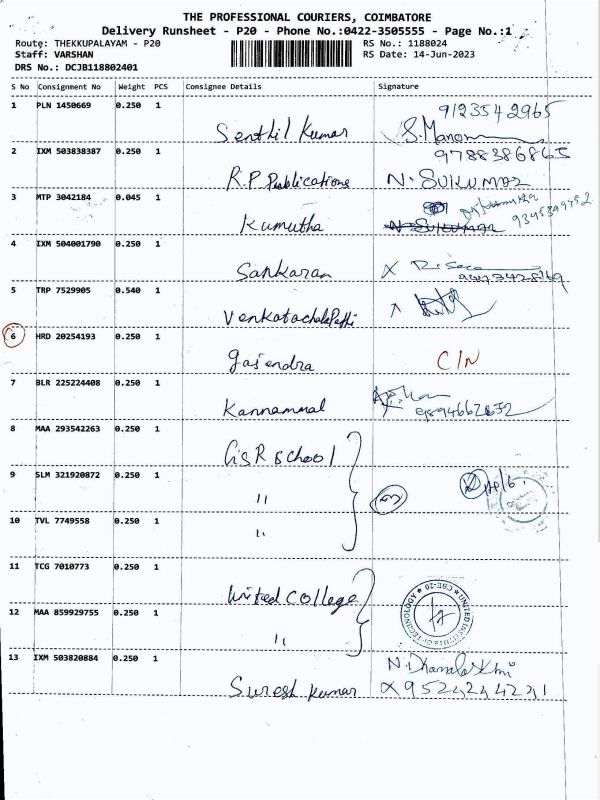 THE PROFESSIONAL COURIERS, COIMBATORE
Delivery Runsheet - P20 - Phone No.:0422-3505555 - Page No.:1
Route: THEKKUPALAYAM - P20 RS No.: 1188024
Staff: VARSHAN RS Date: 14-Jun-2023
DRS No.: DCJB118802401
S No Consignment No Weight PCS Consignee Details Signature
1 PLN 1450669 0.250 1 9123542965
Senthil Kumar S. Manom
2 IXM 503838387 0.250 1 9788386865
R.P. Publications N. SUKUMAR
3 MTP 3042184 0.045 1
Kumutha N. SUKUMAR
4 IXM 504001790 0.250 1
Sankaran X
5 TRP 7529905 0.540 1
Venkatachalapathi
6 HRD 20254193 0.250 1
gajendra C/N
7 BLR 225224408 0.250 1
Kannammal
8 MAA 293542263 0.250 1
GSR School
9 SLM 321920872 0.250 1
"
10 TVL 7749558 0.250 1
"
11 TCG 7010773 0.250 1
United College
UNITED INSTITUTE OF TECHNOLOGY CBE-20
12 MAA 859929755 0.250 1
"
13 IXM 503820884 0.250 1 N. Dhanalakshmi
Suresh kumar X 9524244241